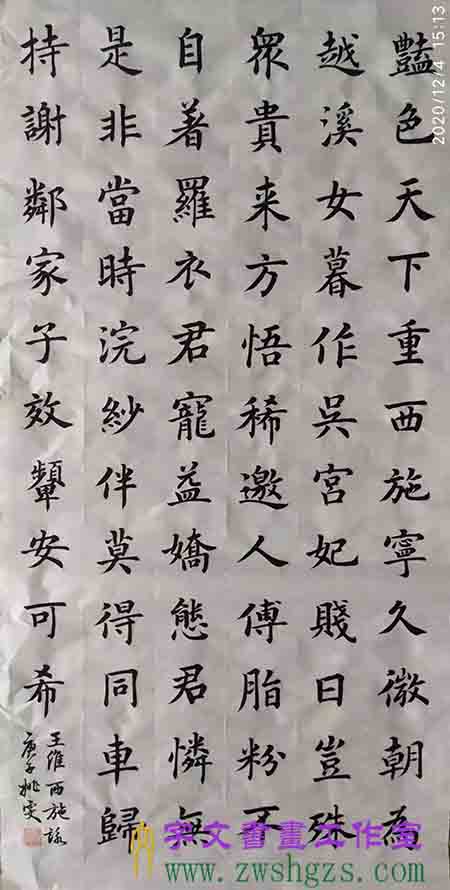 豔色天下重西施寧久微朝為
越溪女暮作吳宮妃賤日豈殊
衆貴来方悟稀邀人傅脂粉不
自著羅衣君寵益嬌態君憐無
是非當時浣紗伴莫得同車歸
持謝鄰家子效顰安可希
王維西施詠
庚子姚雯
2020/12/4 15:13
字文書畫工作室
www.zwshgzs.com